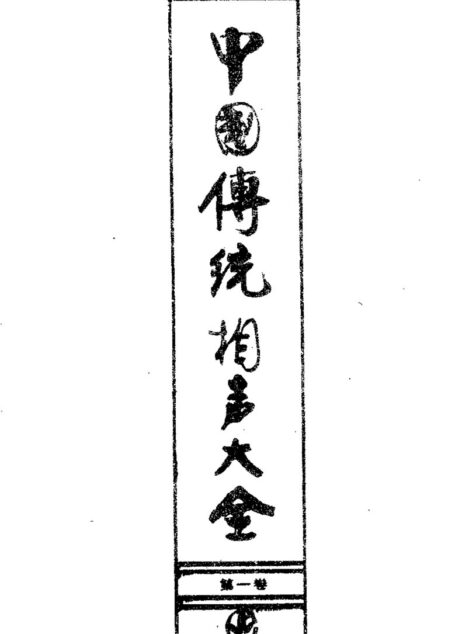 中國傳统相声大全
第一卷